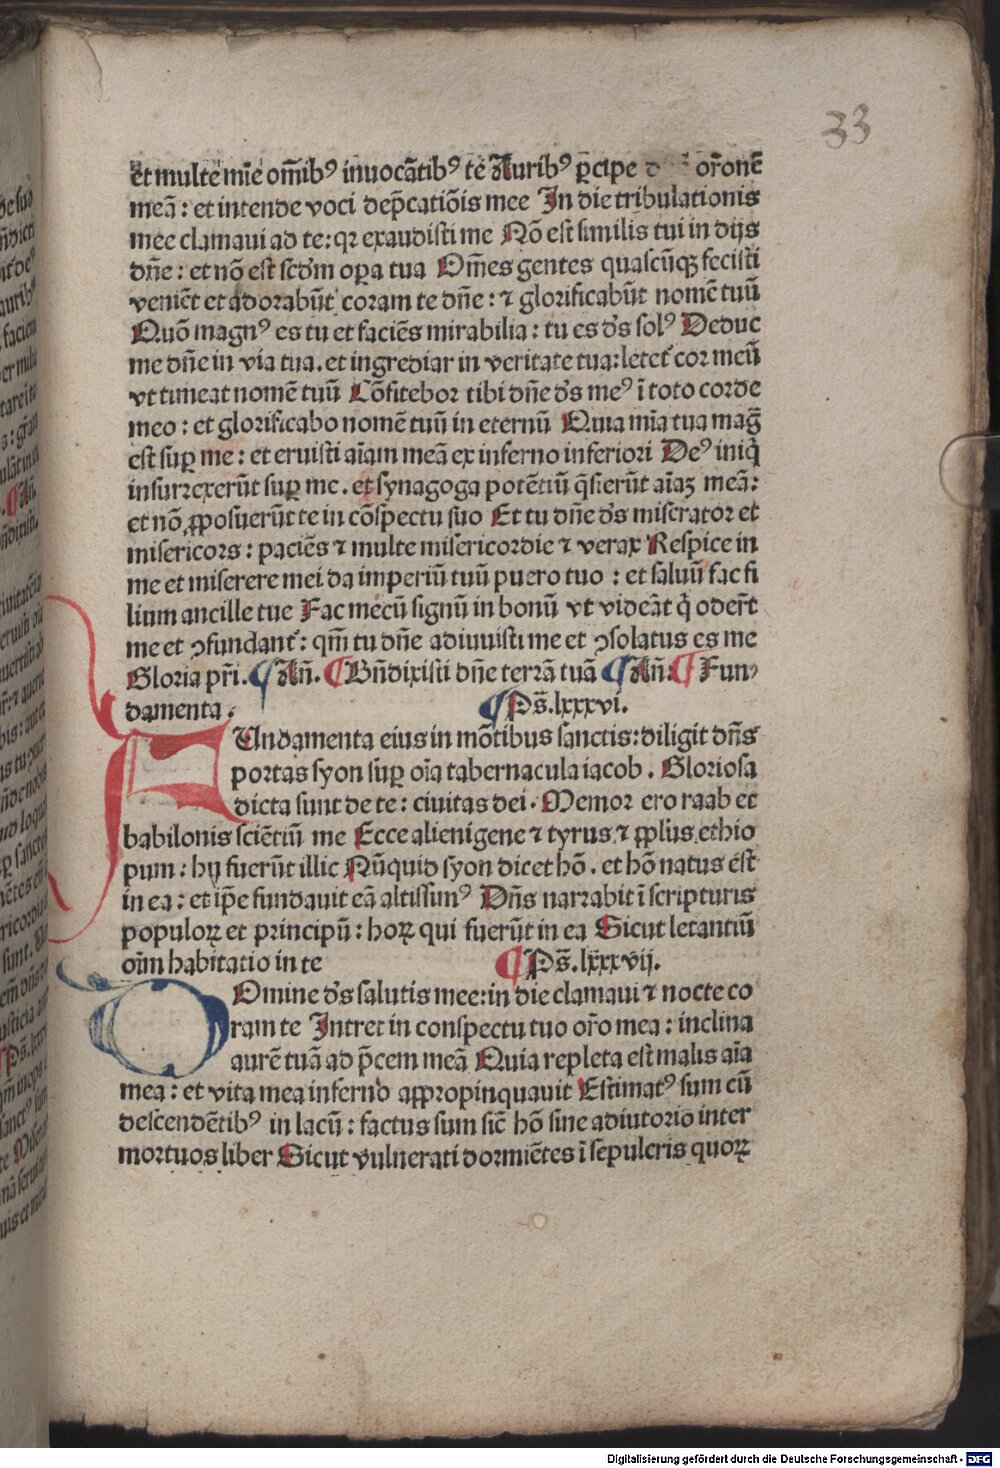 33
et multe mīe om̄ib⁹ inuocātib⁹ te Aurib⁹ ꝑcipe d or̄onē
meā : et intende voci dep̄catiōis mee In die tribulationis
mee clamaui ad te: qꝛ exaudisti me Nō est similis tui in dijs
dn̄e : et nō est scd̄m oꝑa tua Om̄es gentes quascūqꝫ fecisti
veniēt et adorabūt coram te dn̄e : ⁊ glorificabūt nomē tuū
Quō magn⁹ es tu et faciēs mirabilia : tu es d̄s sol⁹ Deduc
me dn̄e in via tua . et ingrediar in veritate tua: letet̄ cor meū
vt timeat nomē tuū Cōfitebor tibi dn̄e d̄s me⁹ ī toto corde
meo : et glorificabo nomē tuū in eternū Quia mīa tua maḡ
est suꝑ me : et eruisti aīam meā ex inferno inferiori De⁹ iniq̄
insurrexerūt suꝑ me . et synagoga potētiū q̄sierūt aīaꝫ meā :
et nō ꝓposuerūt te in cōspectu suo Et tu dn̄e d̄s miserator et
misericors : paciēs ⁊ multe misericordie ⁊ verax Respice in
me et miserere mei da imperiū tuū puero tuo : et saluū fac fi
lium ancille tue Fac mecū signū in bonū vt videāt q̄ oder̄t
me et ꝯfundant̄ : qm̄ tu dn̄e adiuuisti me et ꝯsolatus es me
Gloria pr̄i . ¶ An̄. ¶ Bn̄dixisti dn̄e terrā tuā ¶ An̄. ¶ Fun⸗
damenta . ¶ Ps̄. lxxxvi.
FUndamenta eius in mōtibus sanctis: diligit dn̄s
portas syon suꝑ oīa tabernacula iacob . Gloriosa
dicta sunt de te : ciuitas dei . Memor ero raab et
babilonis sciētiū me Ecce alienigene ⁊ tyrus ⁊ ꝓpl̄us ethio
pum : hij fuerūt illic Nūquid syon dicet hō . et hō natus est
in ea : et ip̄e fundauit eā altissim⁹ Dn̄s narrabit ī scripturis
populoꝝ et principū : hoꝝ qui fuerūt in ea Sicut letantiū
oīm habitatio in te ¶ Ps̄. lxxxvij.
DOmine d̄s salutis mee: in die clamaui ⁊ nocte co
ram te Intret in conspectu tuo or̄o mea : inclina
aurē tuā ad p̄cem meā Quia repleta est malis aīa
mea : et vita mea inferno appropinquauit Estimat⁹ sum cū
descendētib⁹ in lacū : factus sum sic̄ hō sine adiutorio inter
mortuos liber Sicut vulnerati dormiētes ī sepulcris quoꝝ
Digitalisierung gefördert durch die Deutsche Forschungsgemeinschaft - DFG